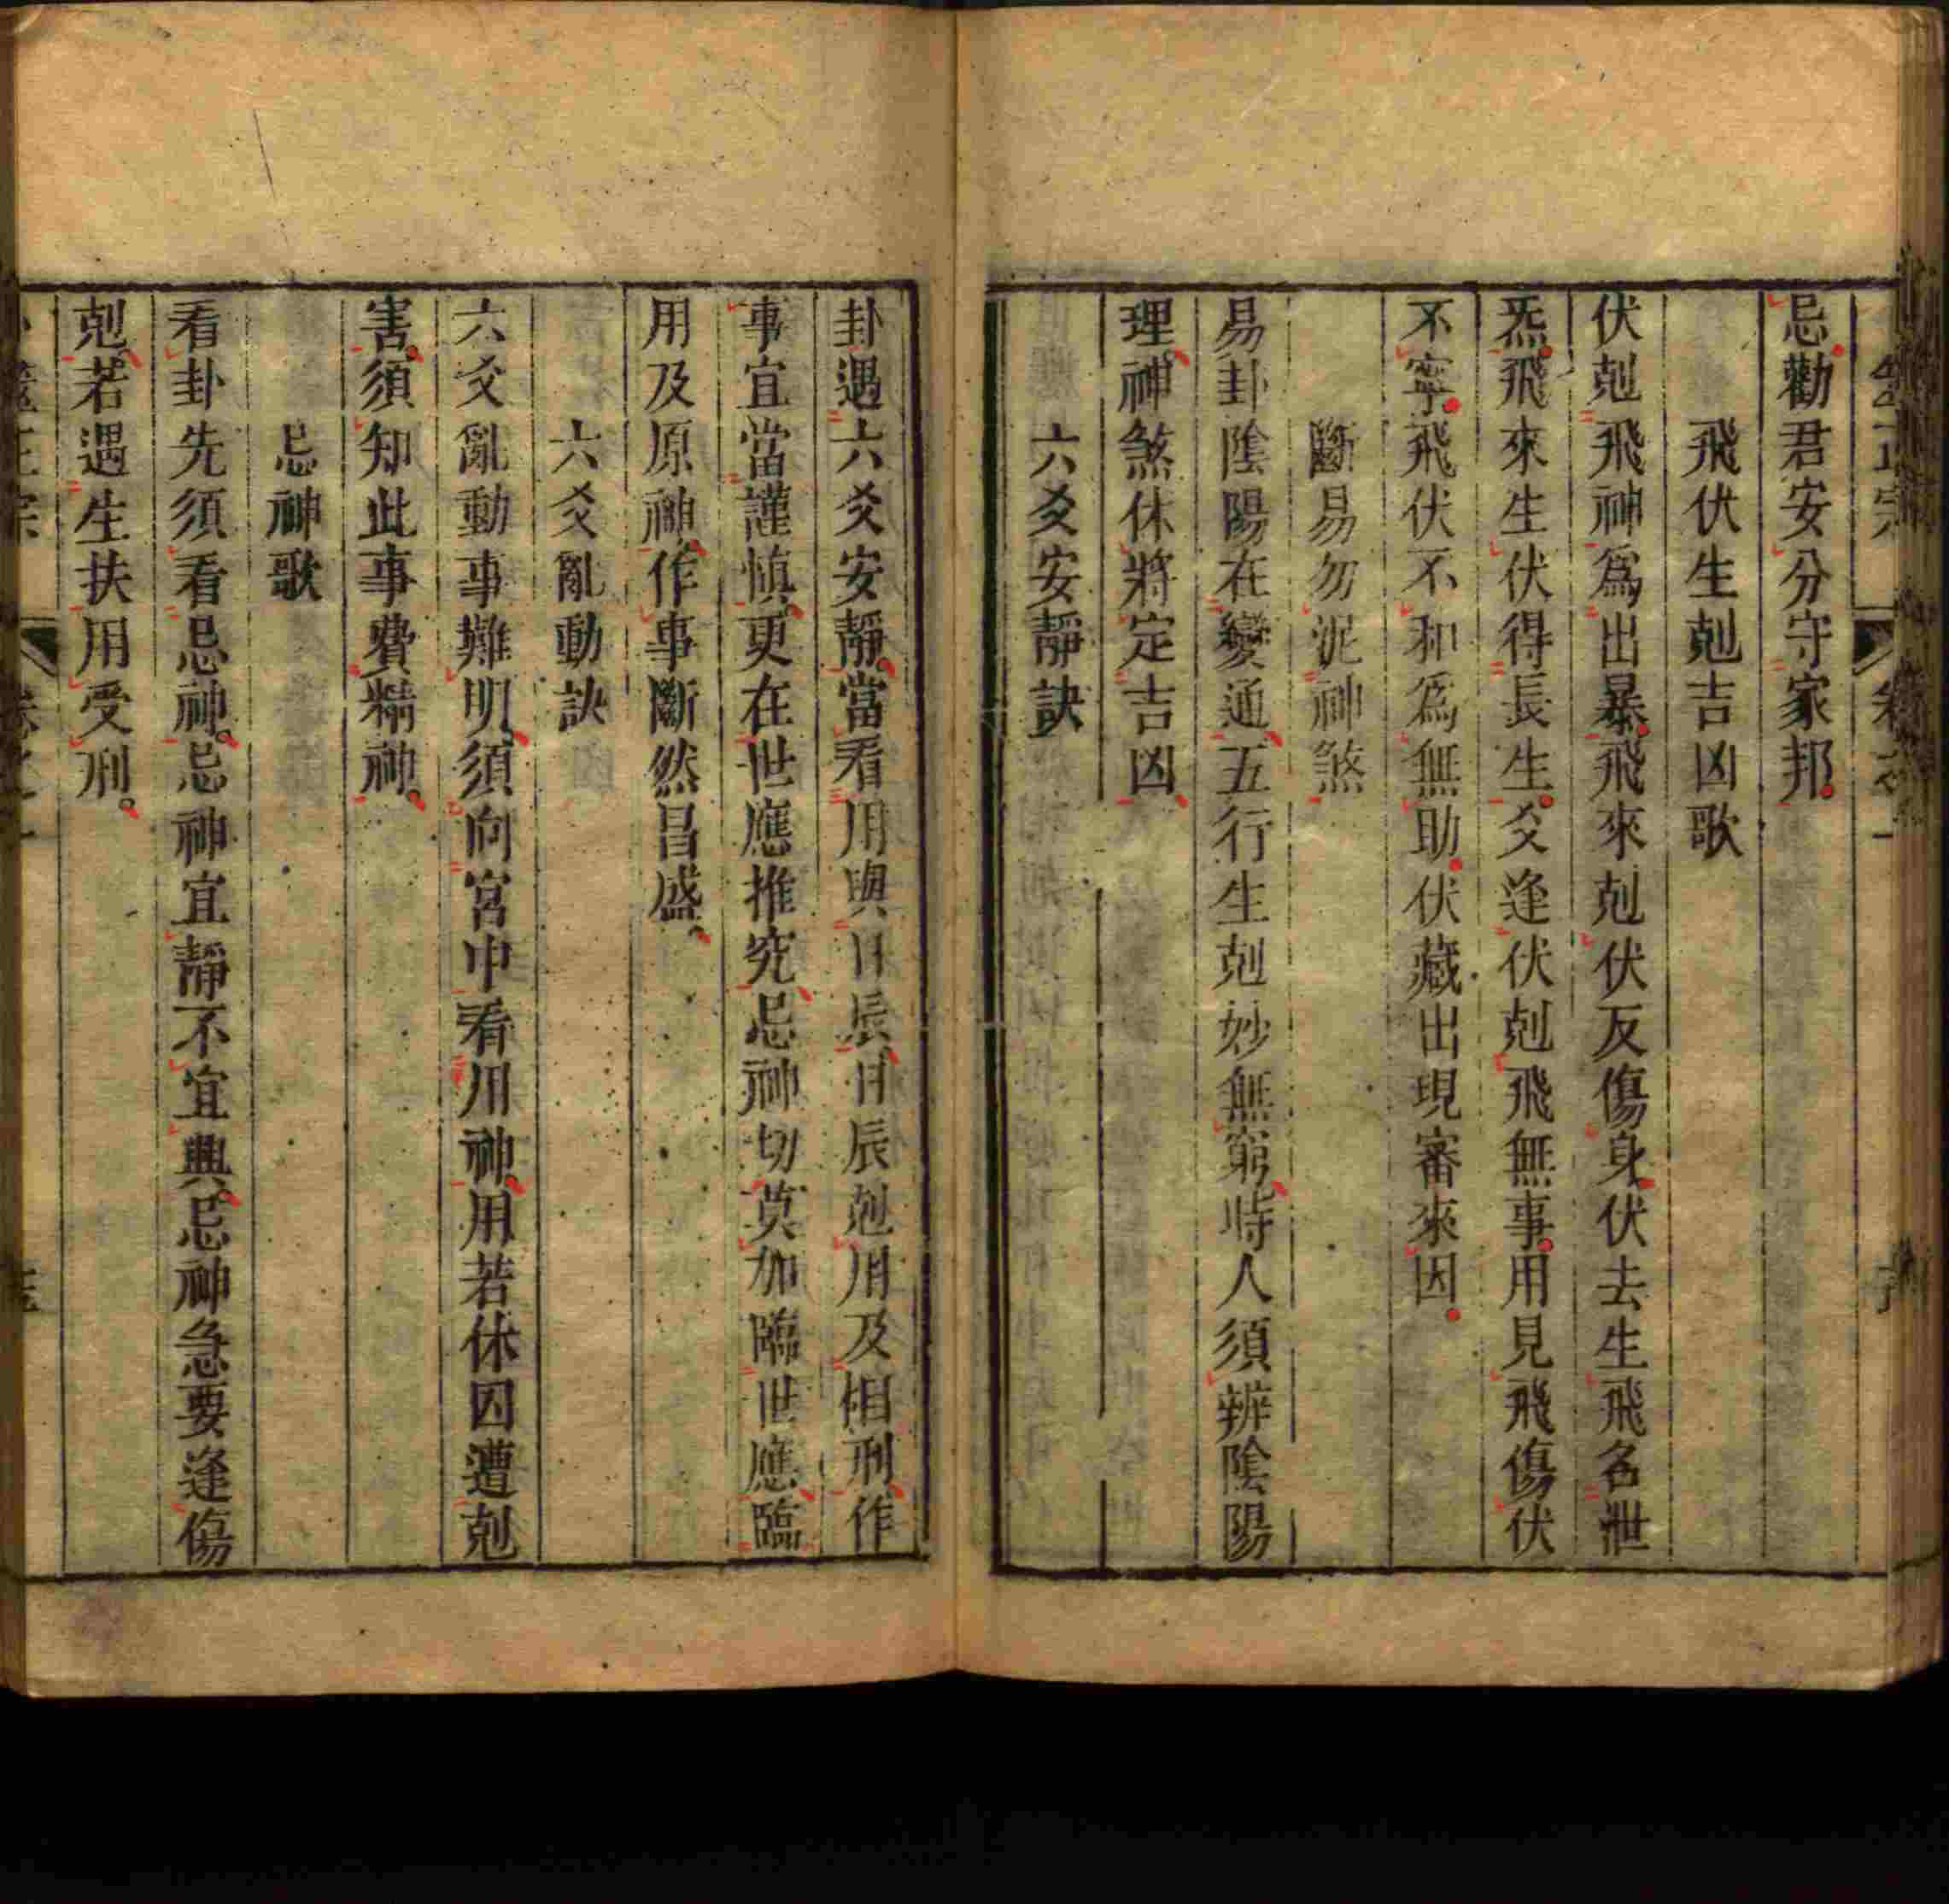 忌勸君安分守家邦
飛伏生剋吉凶歌
伏剋飛神爲出暴飛來剋伏反傷身伏去生飛名泄
炁飛來生伏得長生爻逢伏剋飛無事用見飛傷伏
不寧飛伏不和爲無助伏藏出現審來因
斷易勿泥神煞
易卦陰陽在變通五行生剋妙無窮時人須辨陰陽
理神煞休將定吉凶
六爻安靜訣
卦遇六爻安靜當看用與日辰日辰剋用及相刑作
事宜當謹慎更在世應推究忌神切莫加臨世應臨
用及原神作事斷然昌盛
六爻亂動訣
六爻亂動事難明須向宮中看用神用若休囚遭剋
害須知此事費精神
忌神歌
看卦先須看忌神忌神宜靜不宜興忌神急要逢傷
剋若遇生扶用受刑